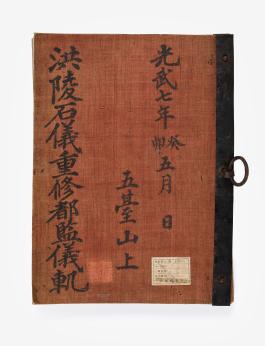 光武七年癸卯五月 日
五臺山上
洪陵石儀重修都監儀軌